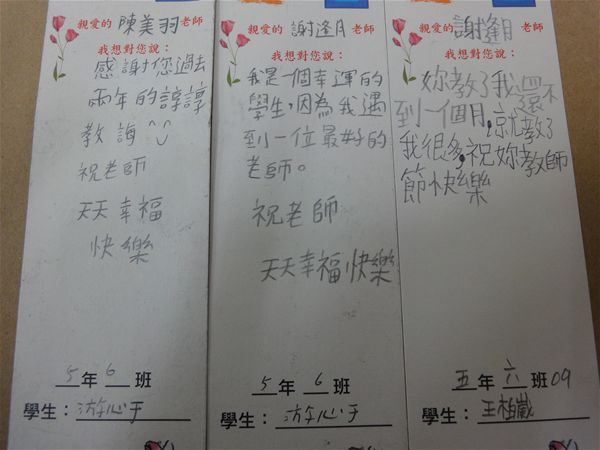 親愛的 陳美羽 老師
我想對您說：
感謝您過去
兩年的諄諄
教誨
祝老師
天天幸福
快樂
5年6班
學生：游心于
親愛的 謝逢月 老師
我想對您說：
我是一個幸運的
學生，因為我遇
到一位最好的
老師。
祝老師
天天幸福快樂
5年6班
學生：游心于
親愛的 謝逢月 老師
我想對您說：
妳教了我還不
到一個月，就教了
我很多，祝妳教師
節快樂
五年六班09
學生：王柏崴